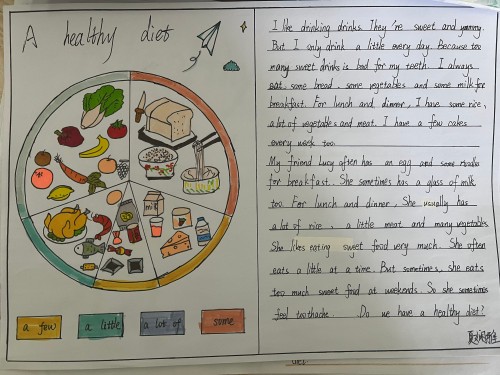 A healthy diet
a few
a little
a lot of
some
I like drinking drinks. They're sweet and yummy.
But I only drink a little every day. Because too
many sweet drinks is bad for my teeth. I always
eat some bread, some vegetables and some milk for
breakfast. For lunch and dinner, I have some rice,
a lot of vegetables and meat. I have a few cakes
every week too.
My friend Lucy often has an egg and some noodles
for breakfast. She sometimes has a glass of milk
too. For lunch and dinner, She usually has
a lot of rice, a little meat and many vegetables.
She likes eating sweet food very much. She often
eats a little at a time. But sometimes, she eats
too much sweet food at weekends. So she sometimes
feel toothache. Do we have a healthy diet?